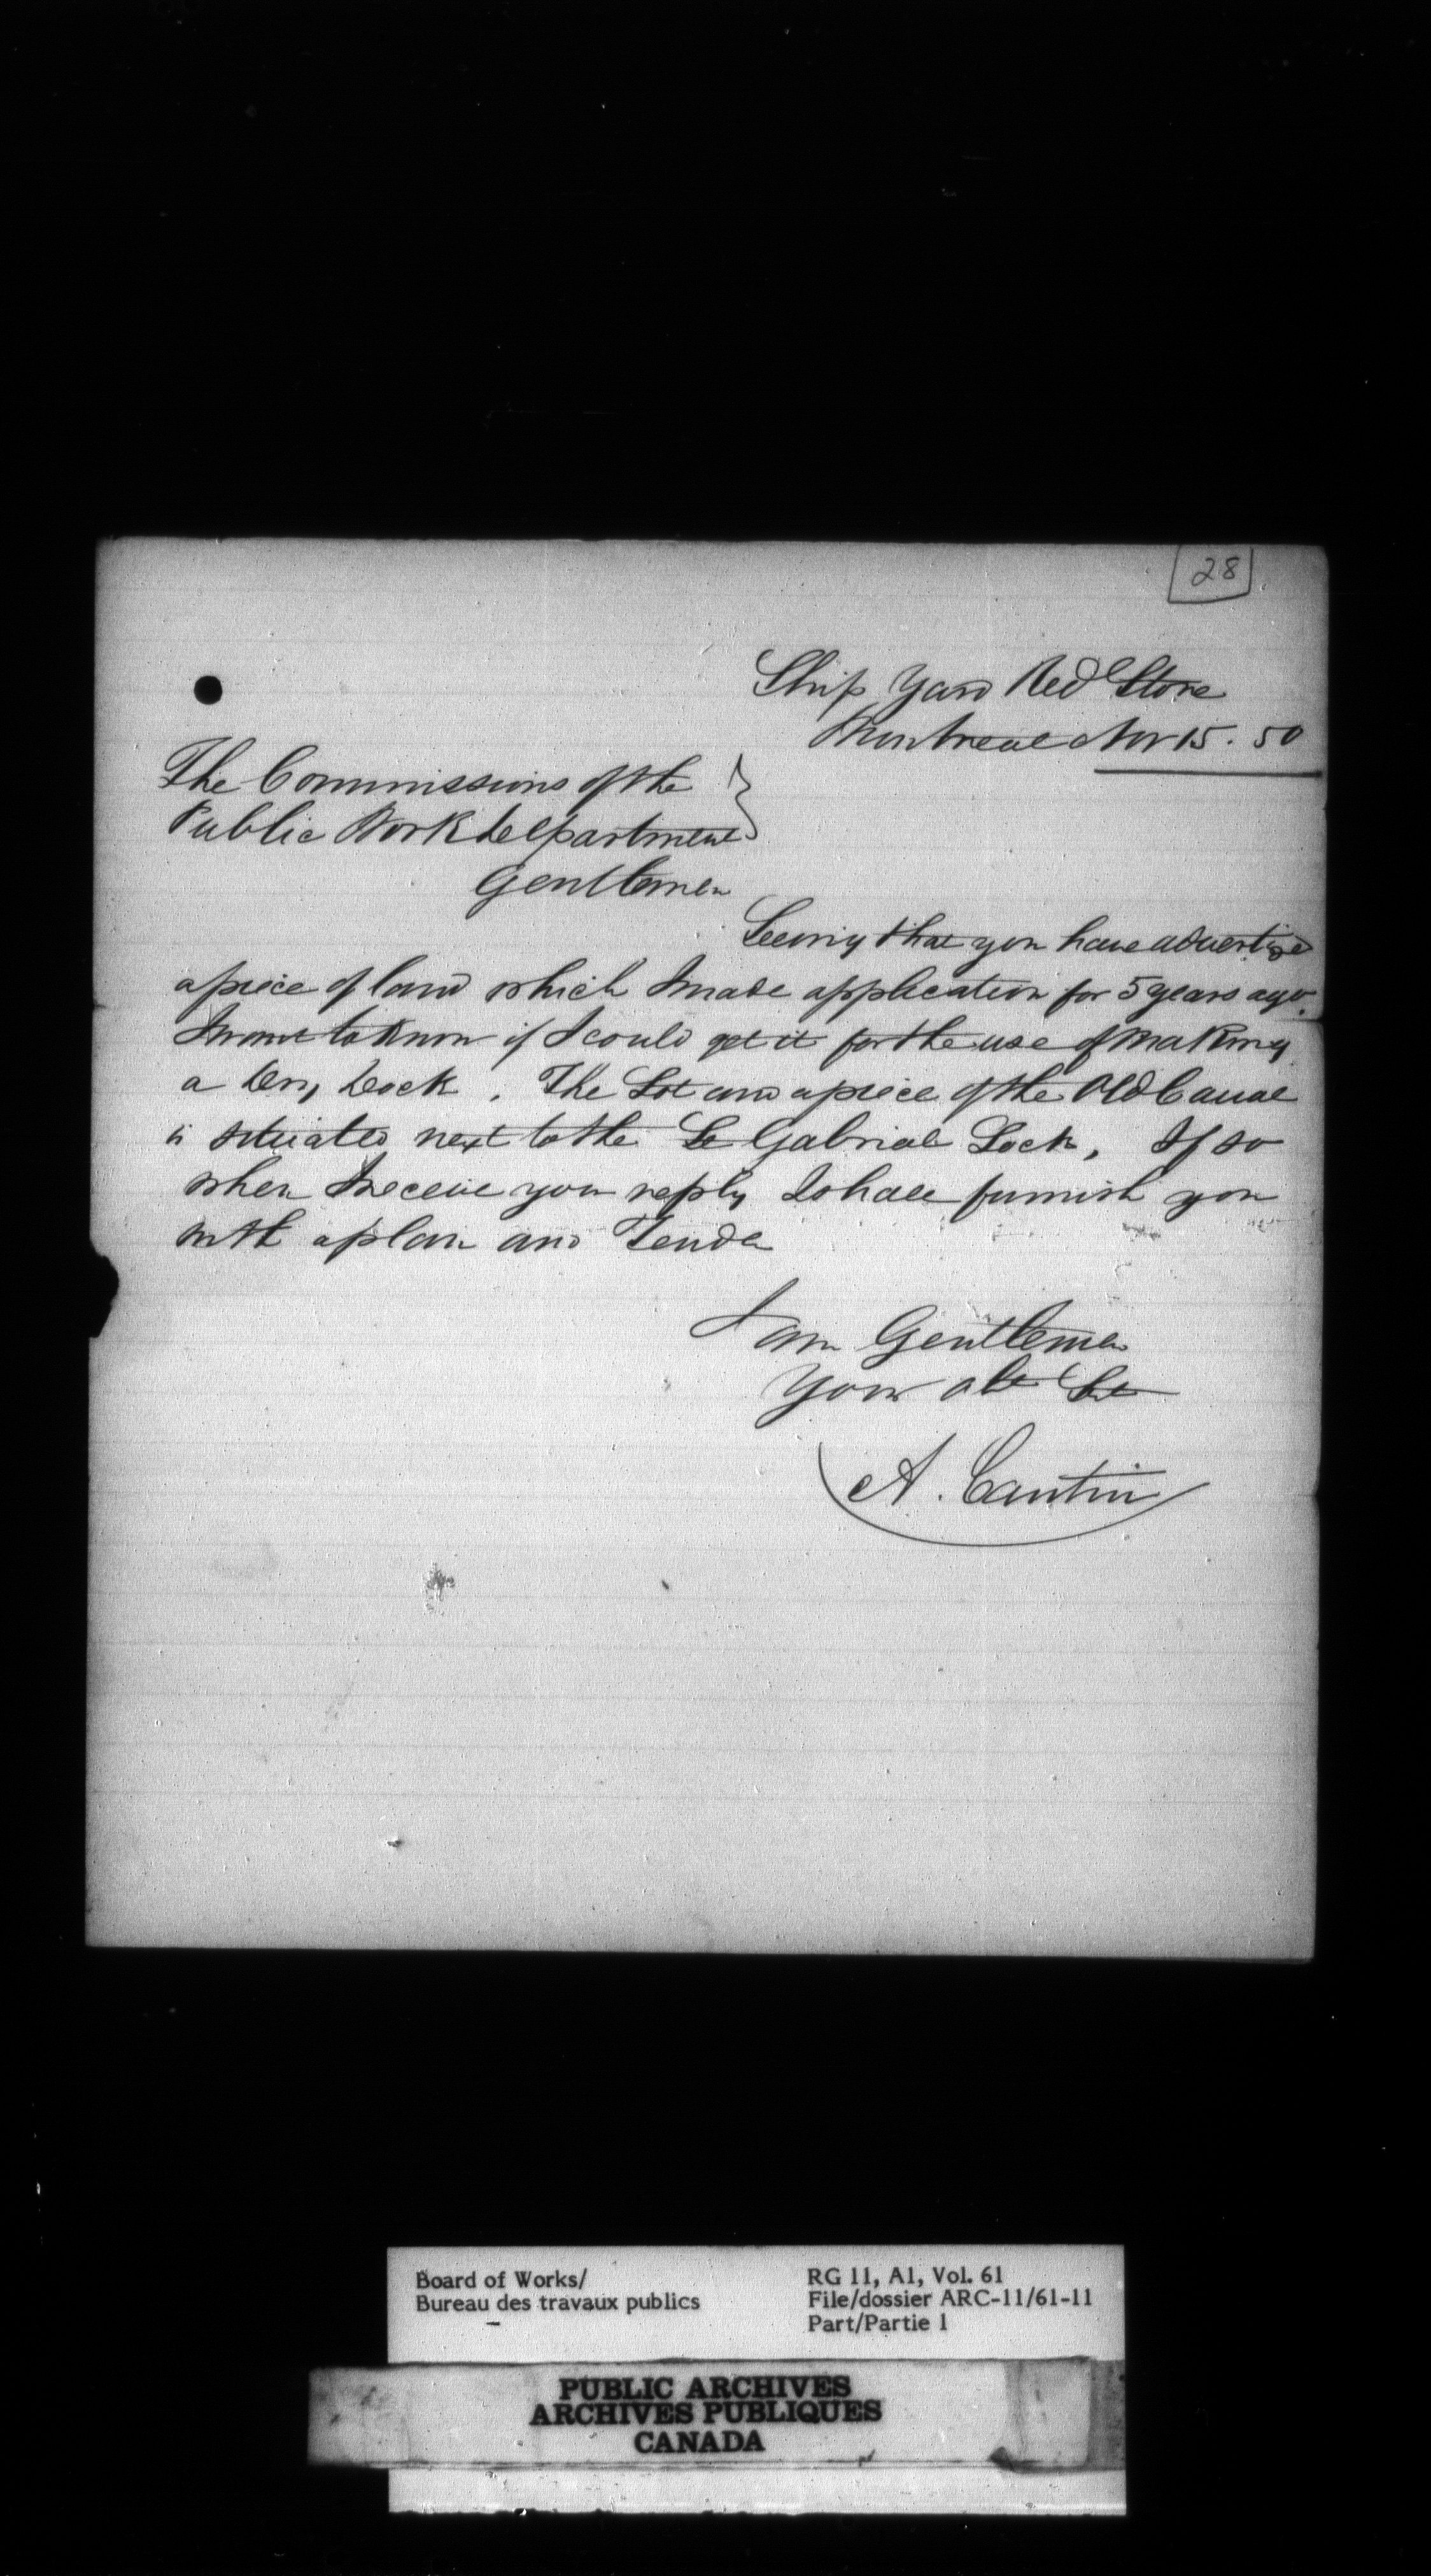 28
Ship Yard Red Store
Montreal Nov 15. 50
The Commissions of the
Public Work Department
Gentlemen
Seeing that you have advertized
a piece of land which I made application for 5 years ago.
I want to know if I could get it for the use of making
a Dry Dock. The Lot and a piece of the Old Canal
is situated next to the St Gabriel Lock, If so
when I receive your reply I shall furnish you
with a plan and Tender
I am Gentlemen
Your obt Svt
A. Cantin
Board of Works/
Bureau des travaux publics
RG 11, A1, Vol. 61
File/dossier ARC-11/61-11
Part/Partie 1
PUBLIC ARCHIVES
ARCHIVES PUBLIQUES
CANADA